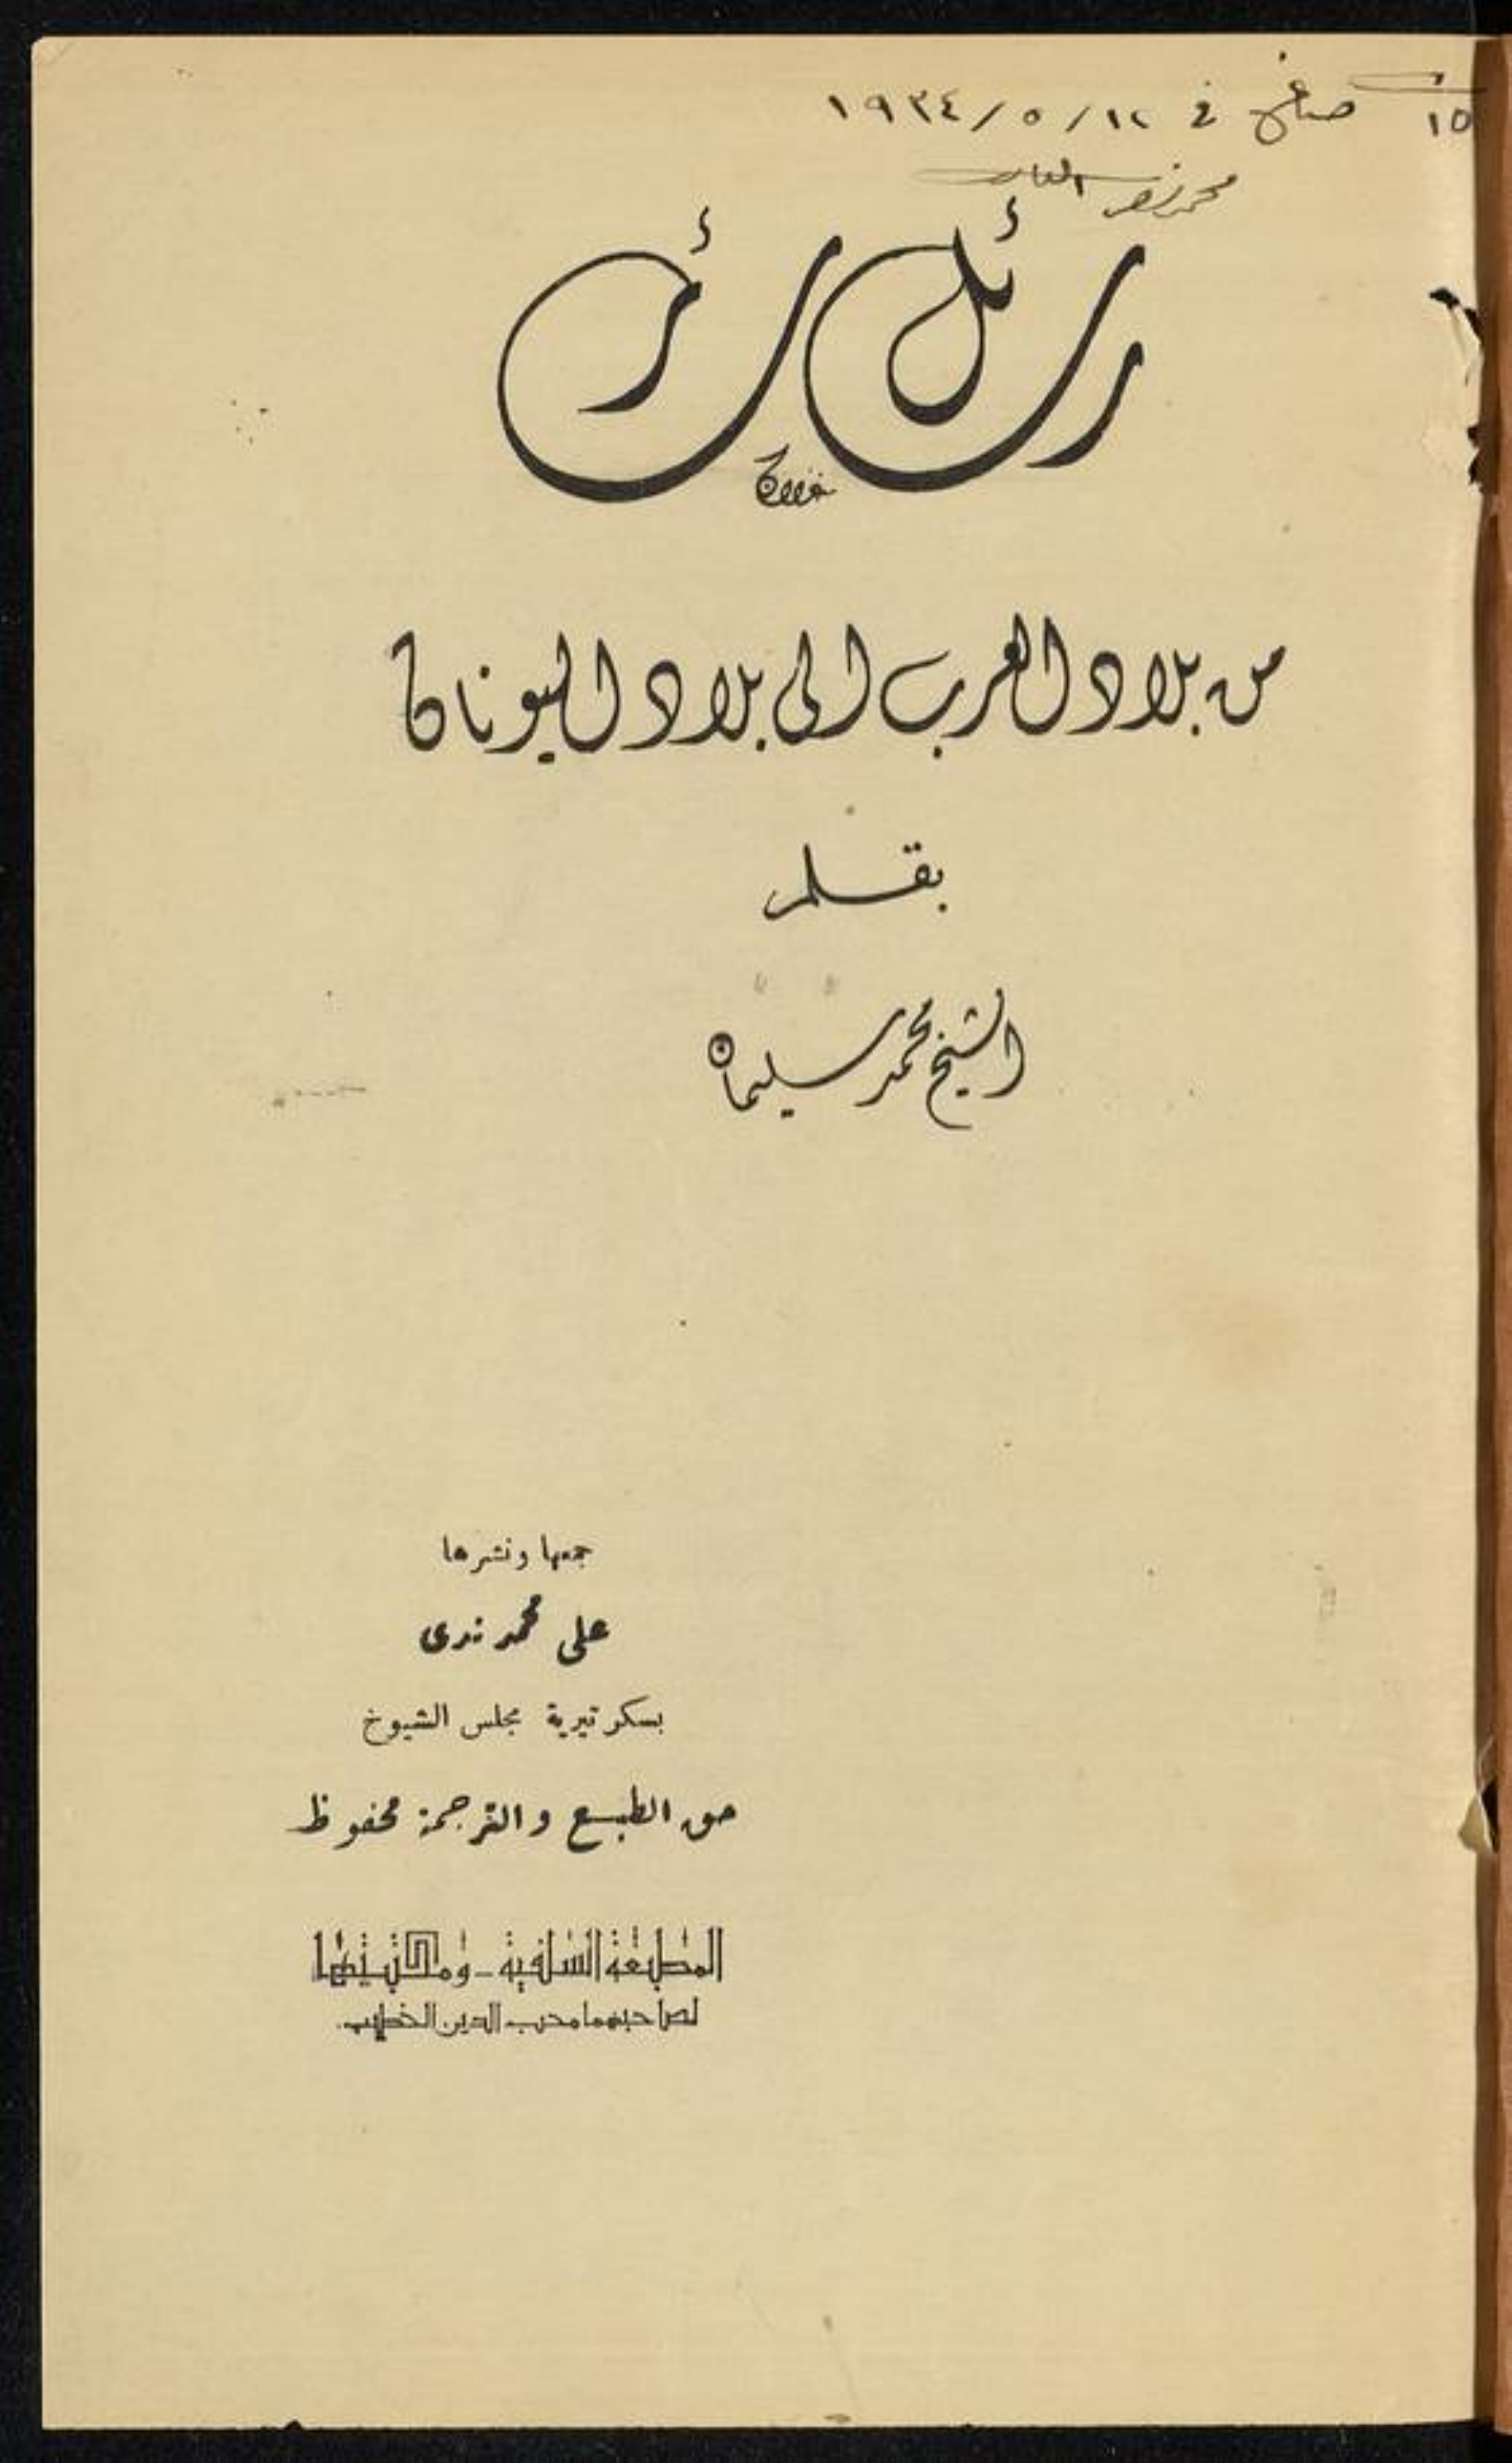 ١٥ صاغ في ١٢/٥/١٩٣٤
محمد نصر
رسائل سائر
من بلاد العرب الى بلاد اليونان
بقلم
الشيخ محمد سليمان
جمعها ونشرها
على محمد ندى
بسكرتيرية مجلس الشيوخ
حق الطبع والترجمة محفوظ
المطبعة السلفية - ومكتبتها
لصاحبها محب الدين الخطيب.